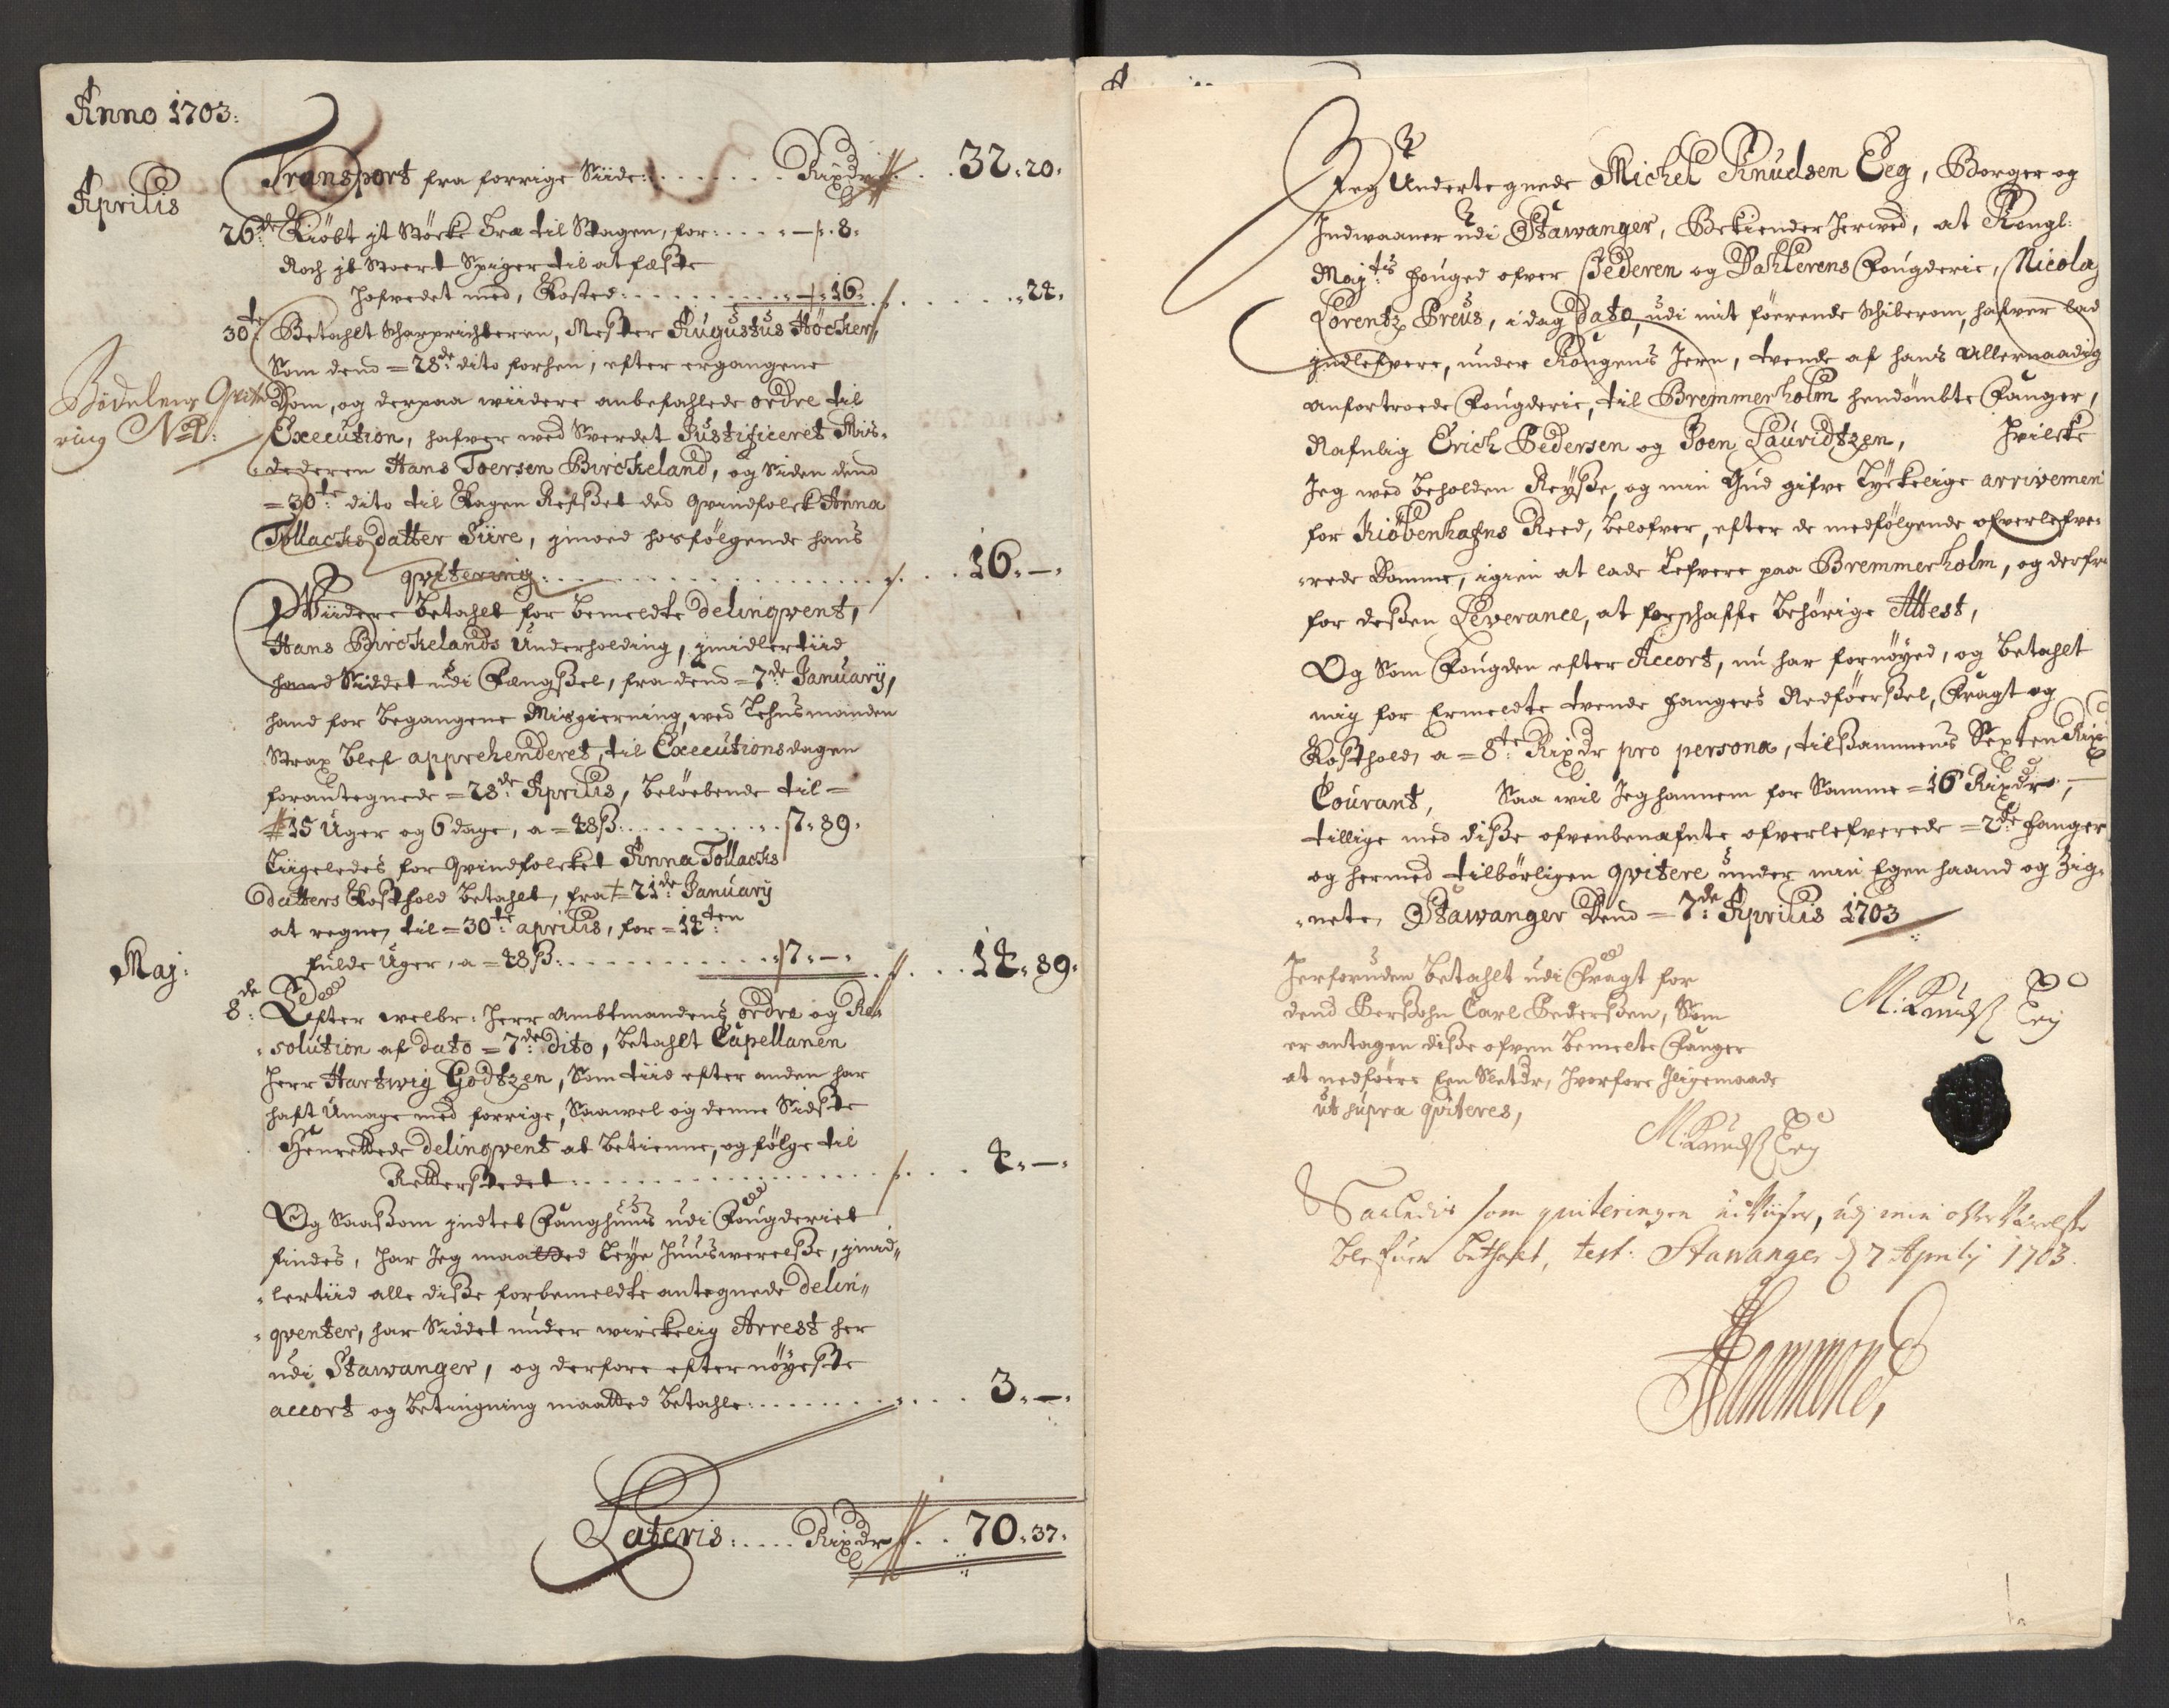 Anno 1703:
Aprilis
Transport fra forrige Siide: . . . . . . . Rixdr . . 32. 20.
26de Kiøbt it Støcke Træ til Stagen, for: . . . . — 8.
Noch it Stoert Spiger til at fæste
Hofvedet med, Kosted: . . . . . . . . . — 16. . . . . . . 24.
30te Betahlt Skarprichteren, Mester Augustus Höcker,
Som dend = 28de dito forhen, efter ergangene
Bødelens Qvite
Dom, og derpaa wiidere anbefahlede ordre til
ring No
Execution, hafver med Sverdet Justificeret Mis-
dederen Hans Toersen Birckeland, og Siden dend
= 30te dito til Kagen Refsset det Qvindfolck Anna
Tollacks datter Siire, imod hosfølgende hans
qvitering: . . . . . . . . . . . . . . . . 16. —.
Wiidere betahlt for bemeldte delinqvent,
Hans Birckelands Underholding, imidlertiid
hand Siddet udi Fængssel, fra dend = 7de January,
hand for begangene Misgierning, ved Lehnsmanden
Strax blef apprehenderet, til Executionsdagen
forantegnede = 28de Aprilis, beløebende til =
15 Uger og 6 dage, a = 48 ß: . . . . . . . . 7. 89.
Liigeledes for Qvindfolcket Anna Tollacks
datters Kosthold betahlt, fra = 21de January
at regne, til = 30te aprilis, for = 14ten
fulde Uger, a = 48 ß: . . . . . . . . . . . 7. —. . . . 14. 89.
Maj:
8de Efter welbr: Herr Ambtmandens ordre og Re-
solution af dato = 7de dito, betahlt Capellanen
Herr Hartwig Godtzen, Som tiid efter anden har
haft Umage med forrige, Saawel og denne Sidste
Henrettede delinqvent at betienne, og følge til
Retterstedet: . . . . . . . . . . . . . . . 4. —.
Og Saassom indtet Fanghuus udi Fougderiet
findes, har Jeg maatted Leye Huusswerelsse, imid-
lertiid alle disse forbemeldte antegnede delin-
qventer, har Siddet under wirckelig Arrest her
udi Stawanger, og derfore efter nøyeste
accort og betingning maatted betahle: . . . . . . . . . . 3. —.
Lateris: . . . . Rixdr . . 70. 37.
Jeg Undertegnede Michel Knudsen Eeg, Borger og
Indwaaner udi Stawanger, Bekiender herwed, at Kongl:
Maytts Fouged ofver Jederen og Dahlerens Fougderie, Nicolaj
Lorentz Preus, i dag Dato, udi mit føerende Skiberom, hafver lad
indlefvere, under Kongens Jern, tvende af hans Allernaadig
anfortroede Fougderie, til Bremmerholm hendømbte Fanger,
Nafnlig Erich Pedersen og Joen Lauridtzen, Hvilcke
Jeg wed beholden Reysse, og min Gud gifve Lyckelige arrivement
for Kiöbenhafns Reed, belofver, efter de medfølgende ofverlefve-
rede Domme, igien at lade Lefvere paa Bremmerholm, og derfra
for dessen Leverance, at forskaffe behørige Attest,
Og Som Fougden efter Accort, nu har fornøyed, og betahlt
mig for Ermeldte tvende fangers Nedføerssel, Fragt og
Kosthold, a = 8te Rixdr pro persona, tilsammens Sexten Rix
Courant, Saa wil Jeg hannem for Samme = 16 Rixdr,
tillige med disse ofvenbenafnte ofverlefverede = 2de fanger
og hermed tilbørligen qvitere under min Egen haand og Zig-
nete, Stawanger Dend = 7de Aprilis 1703
Herforuden betahlt udi Fragt for
dend Perssohn Carl Pederssen, Som
er antagen disse ofven bemelte Fanger
at nedføere Een Sletdr, hvorfore Iligemaade
ut supra qviteres,
M: Knuds Eeg
M: Knuds Eeg
Saaledis som quiteringen udviser, udj min ofverværelse
blefuen betahlt, test: Stavanger d 7 Aprilij 1703.
Hammond,